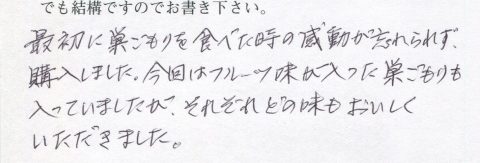 でも結構ですのでお書き下さい。
最初に巣ごもりを食べた時の感動が忘れられず、
購入しました。今回はフルーツ味が入った巣ごもりも
入っていましたが、それぞれどの味もおいしく
いただきました。